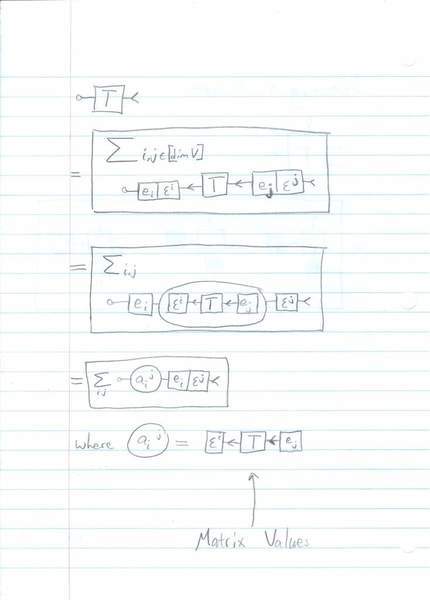 T
∑ i,j∈[dim V]
= e_i ε^i ← T ← e_j ε^j
= ∑ i,j
e_i ε^i ← T ← e_j ε^j
= ∑ ij a_i^j e_i ε^j
where a_i^j = ε^i ← T ← e_j
Matrix Values